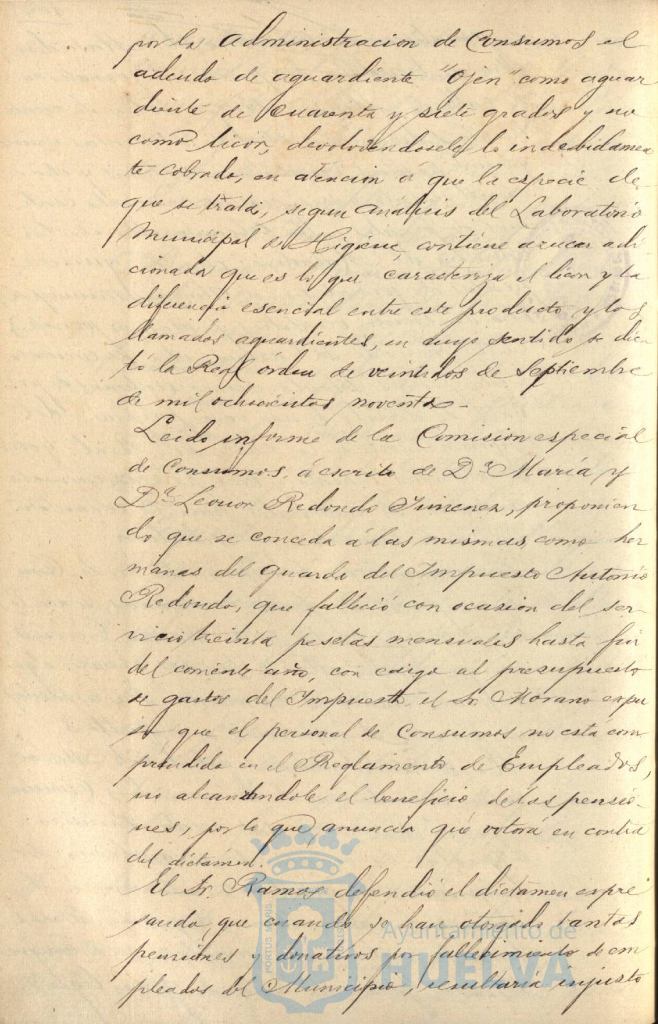 por la Administracion de Consumos el
adeudo de aguardiente "Ojen" como aguar
diente de cuarenta y siete grados y no
como licor, devolviendosele lo indebidamen
te cobrado, en atencion á que la especie de
que se trata, segun análisis del Laboratorio
Municipal de Higiene, contiene azucar adi
cionada que es lo que caracteriza el licor y la
diferencia esencial entre este producto y los
llamados aguardientes, en cuyo sentido se dic
tó la Real órden de veintidos de Septiembre
de mil ochocientos noventa.
Leido informe de la Comision especial
de Consumos, á escrito de Dª María y
Dª Leonor Redondo Jimenez, proponien
do que se conceda á las mismas, como her
manas del guarda del Impuesto Antonio
Redondo, que falleció con ocasion del ser
vicio treinta pesetas mensuales hasta fin
del corriente año, con cargo al presupuesto
de gastos del Impuesto, el Sr. Morano expu
so que el personal de Consumos no está com
prendido en el Reglamento de Empleados,
no alcanzandole el beneficio de las pensio
nes, por lo que, anuncia que votará en contra
del dictámen.
El Sr. Ramos defendió el dictamen expre
sando, que cuando se han otorgado tantas
pensiones y donativos por fallecimiento de em
pleados del Municipio, resultaria injusto
Ayuntamiento de
HUELVA